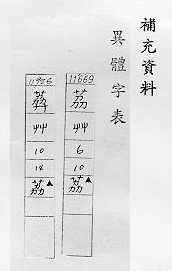 補充資料
異體字表
11669
荔
艸
6
10
荔▲
艸
10
14
荔▲